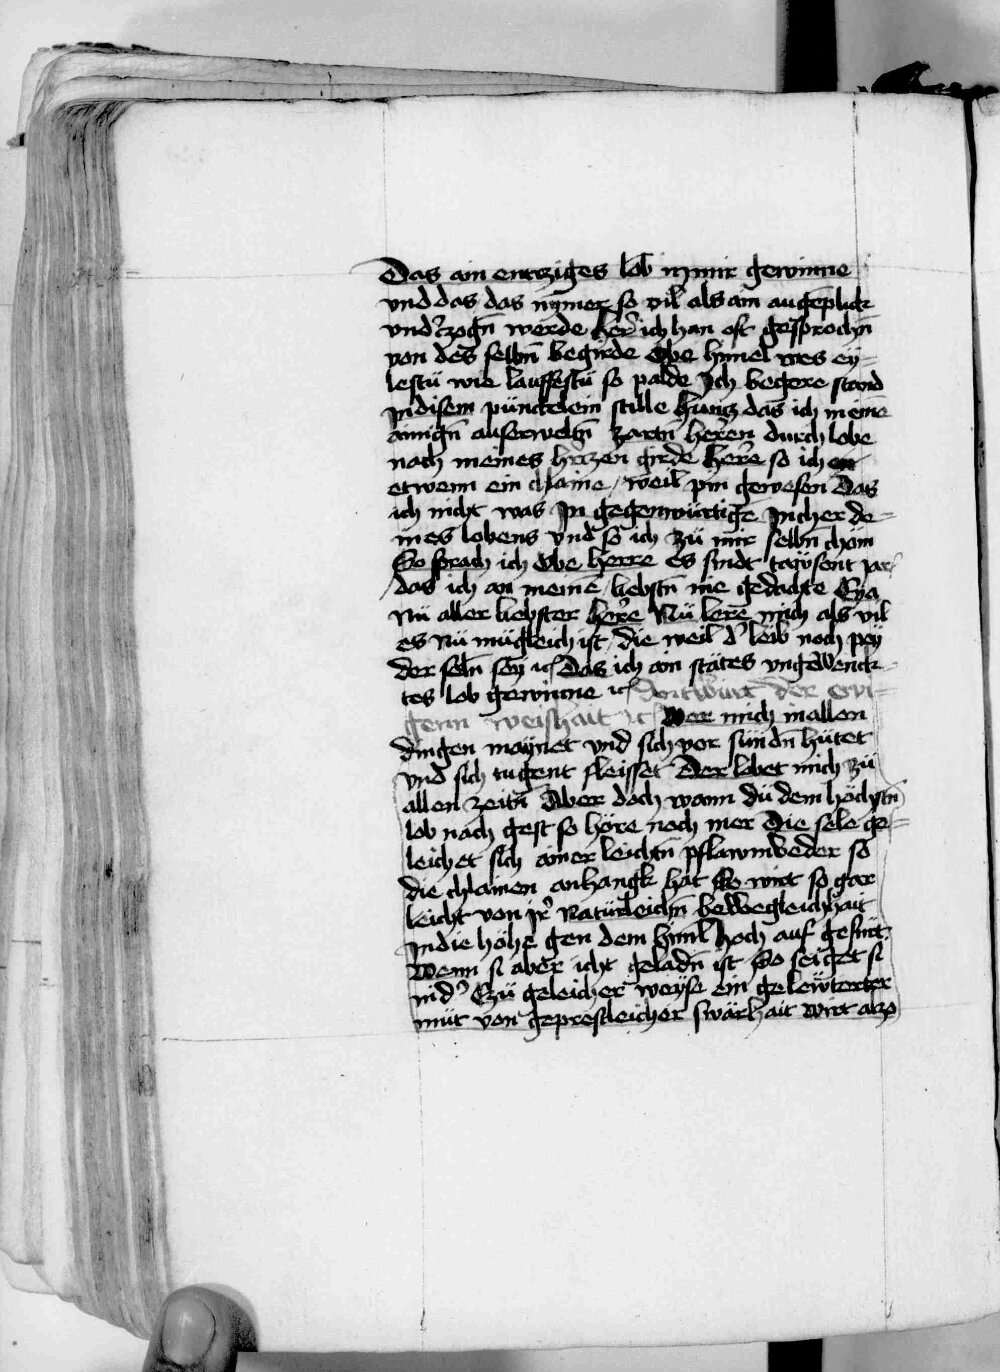 Das ain enczziges lob in mir gewinne
vnd das das nymer so vil als ain augenplick
vnderczogn̄ werde her̄ ich han oft gesprochn̄
von des selbn̄ begirde Owe himel wes ey=
lestü wie lauffestü so palde Ich begere stand
In disem pünctelein stille hüncz das ich meinē
ainign̄ auserweltn̄ zartn̄ heren durch lobe
nach meines herczen girde here so ich
etwenn ein chlaine weil pin gewesen Das
ich nicht was In gegenwürtige Incher de=
ines lobens vnd so ich zü mir selbn̄ chöm
So sprach ich Owe herre es sindt taẅsent Jar
das ich an meinē liebstn̄ nie gedachte Eya
Nü aller liebster here Nü lere mich als vil
es Nü mügleich ist die weil d' leib noch pey
der seln̄ sey ꝛc Das ich ain stätes vngewenck=
tes lob gewinne ꝛc Antwürt der ewi=
genn weishait ꝛc Wer mich in allen
dingen maynet vnd sich vor sündn̄ hütet
vnd sich tugent fleisset Der lobet mich zü
allen zeitn̄ Aber doch wann dü dem höchstn̄
lob nach gest so höre noch mer Die sele ge=
leichet sich ainer leichtn̄ pflawmveder so
die chlainen anhangk hat So wirt so gar
leicht von Jr̄ Natürleichn̄ bewegleichait
In die höhe gen dem himl hoch auf gefürt
Wenn si aber icht geladn̄ ist So seiget si
nid' Czü geleicher weyse ein gelewterter
müt von gepresteleicher swärhait wirt also